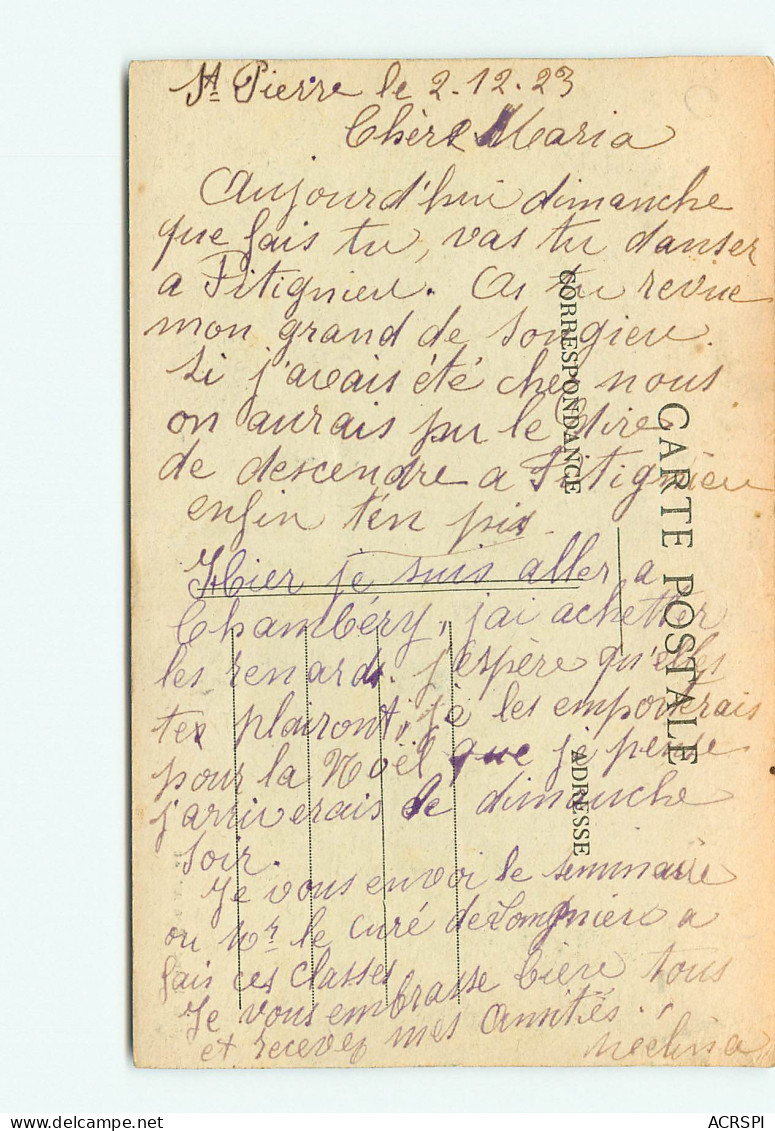 St Pierre le 2.12.23
Chère Maria
Aujourd'hui dimanche
que fais tu, vas tu danser
a Fitignieu. As tu revue
mon grand de Songieu.
Si j'avais été chez nous
on aurais pu le dire
de descendre a Fitignieu
enfin ten pis.
Hier je suis aller a
Chambéry, j'ai achetter
les renards. j'espère qu'elles
te plairont, je les emporterais
pour la Noël que je pense
j'arriverais le dimanche
soir.
Je vous envoi le seminaire
ou Mr. le curé de a
fais ces classes
Je vous embrasse biere tous
et recevez mes amitiés.
CORRESPONDANCE
CARTE POSTALE
ADRESSE
ACRSPI